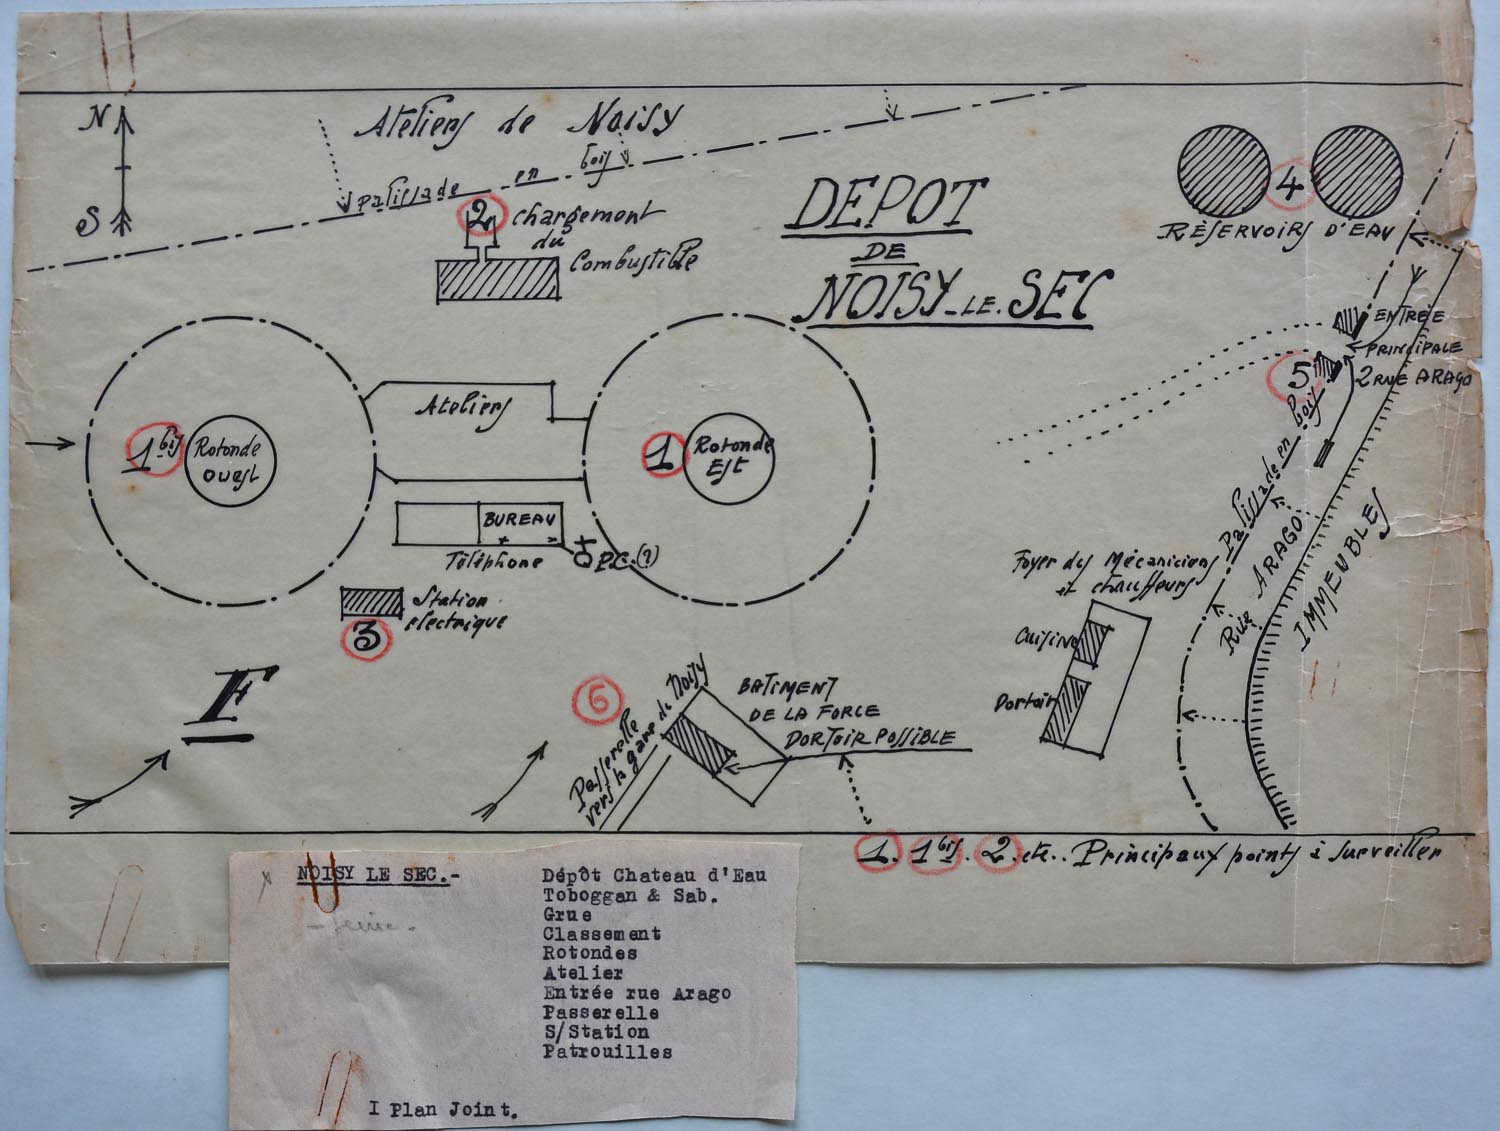 N
S
Ateliers de Noisy
Palissade en bois
2
chargement
du
Combustible
DEPOT
DE
NOISY-LE-SEC
4
RÉSERVOIRS D'EAU
ENTRÉE
PRINCIPALE
2 RUE ARAGO
5
Palissade en bois
Rue ARAGO
IMMEUBLES
1bis
Rotonde
Ouest
Ateliers
1
Rotonde
Est
BUREAU
Téléphone
P.C. (?)
Station
électrique
3
Foyer des Mécaniciens
et chauffeurs
Cuisine
Dortoir
F
6
Passerelle
vers la gare de Noisy
BATIMENT
DE LA FORCE
DORTOIR POSSIBLE
1. 1bis. 2. etc.. Principaux points à surveiller
NOISY LE SEC.-
Dépôt Chateau d'Eau
Toboggan & Sab.
Grue
Classement
Rotondes
Atelier
Entrée rue Arago
Passerelle
S/Station
Patrouilles
I Plan Joint.